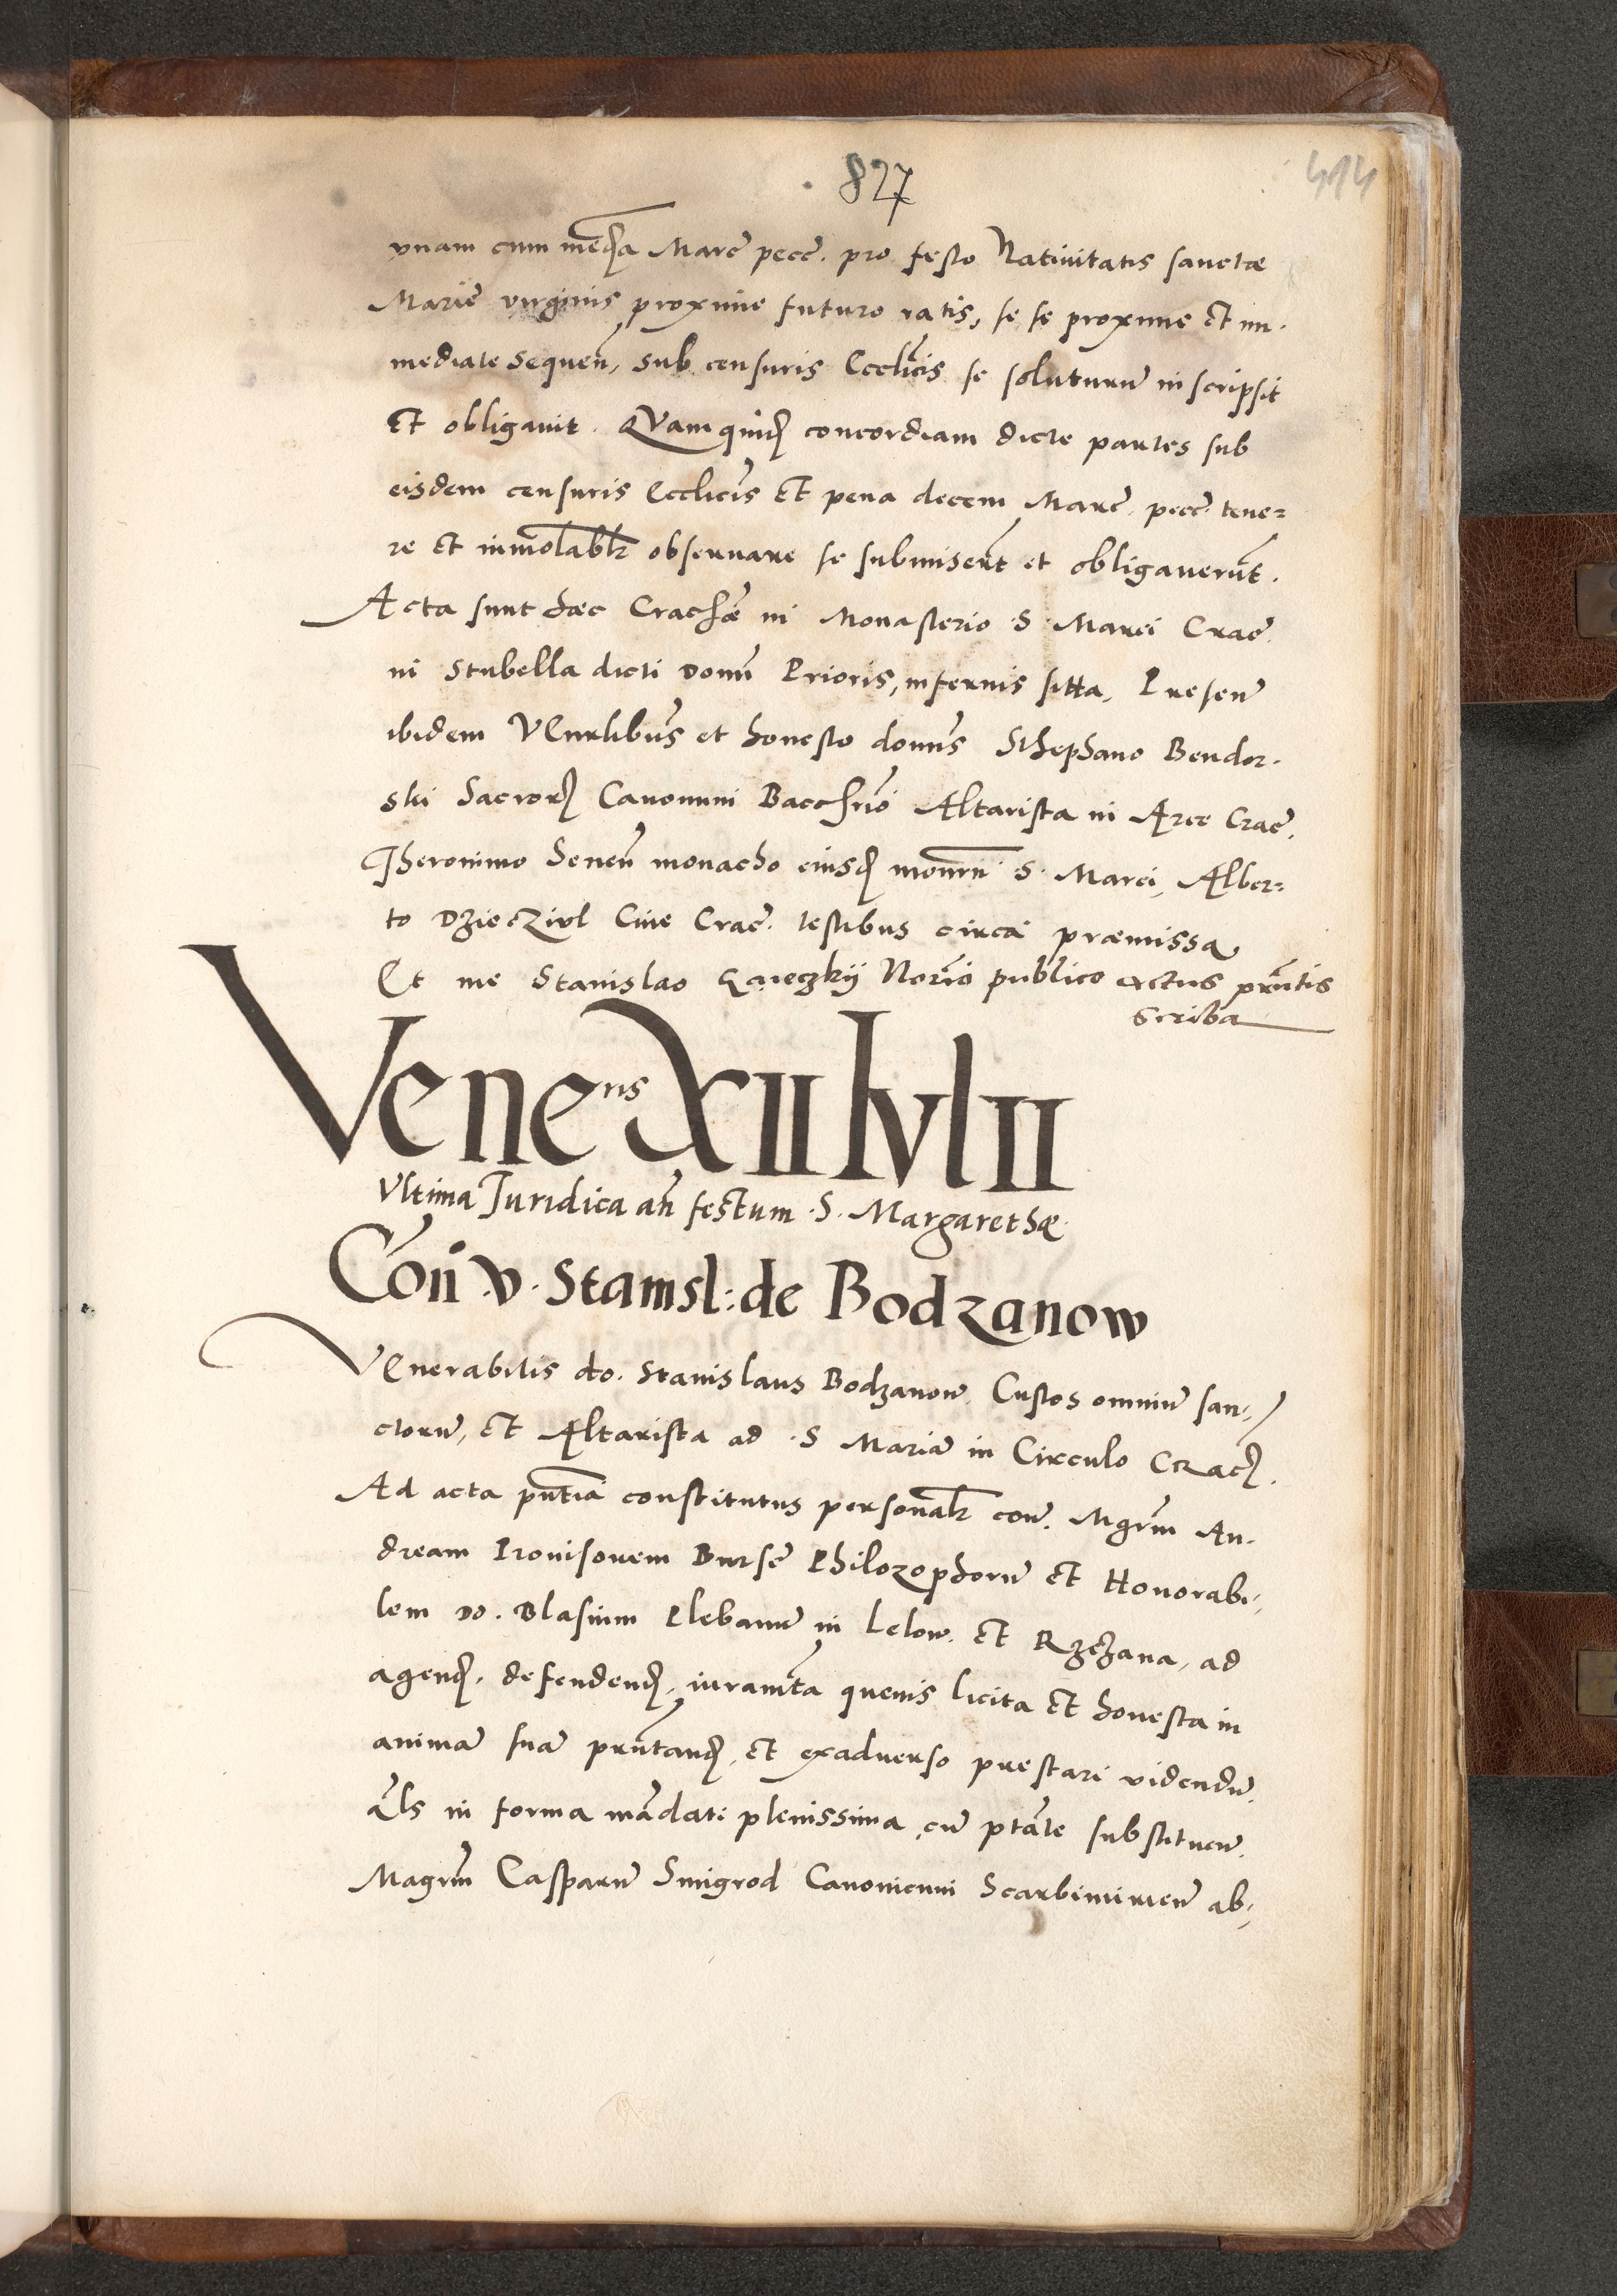 827
414
vnam cum media Marc̃ pecc̃. pro festo Natiuitatis sanctæ
Marie virginis proxime futuro ratis, se se proxime et im.
mediate sequeñ, sub censuris Eccl̃icis se soluturũ inscripsit
Et obligauit. QVam quid̃ concordiam dicte partes sub
eisdem censuris Eccl̃icis Et pena decem Marc̃. pecc̃. tene=
re et inuiolabl̃r obseruare se submiserũt et obligauerũt.
Acta sunt hæc Crachoẽ in Monasterio S. Marci Crac̃.
in Stubella dicti Domñ Prioris, infernis sitta, Preseñ
ibidem VEnrlibũs et honesto domñs Sthephano Bendor.
ski Sacror̃ Canonum Bacch̃rio Altarista in Arce Crac̃.
Jheronimo Seneñ monacho eiusd̃ monr̃ii S. Marci, Alber=
to Dzieczivl Ciue Crac̃. testibus circa præmissa
Et me Stanislao Notr̃io publico actus pr̃ntis
Scriba
Veneris XII IvlII
Vltima Juridica añ festum .S. Margarethæ.
Coñ v. Stanisl: de Bodzanow
VEnerabilis do. Stanislaus Bodzanow Custos omniũ san=
ctorũ, Et Altarista ad .S Mariã in Circulo CRac̃.
Ad acta pñtia constitutus personal̃r coñ. Mgr̃m An.
dream Prouisorem Bursẽ Philozophorũ Et Honorabi=
lem Do. Blasium Plebanũ in Lelow. Et Rzezana, ad
agend̃. defendend̃. iuramẽta queuis licita Et honesta in
animã suã pr̃ntand̃. et exaduerso prestari videndũ.
al̃s in forma mãdati plenissima cũ ptãte substitueñ.
Magr̃m Casparũ Smigrod Canonicum Scarbimirieñ ab=